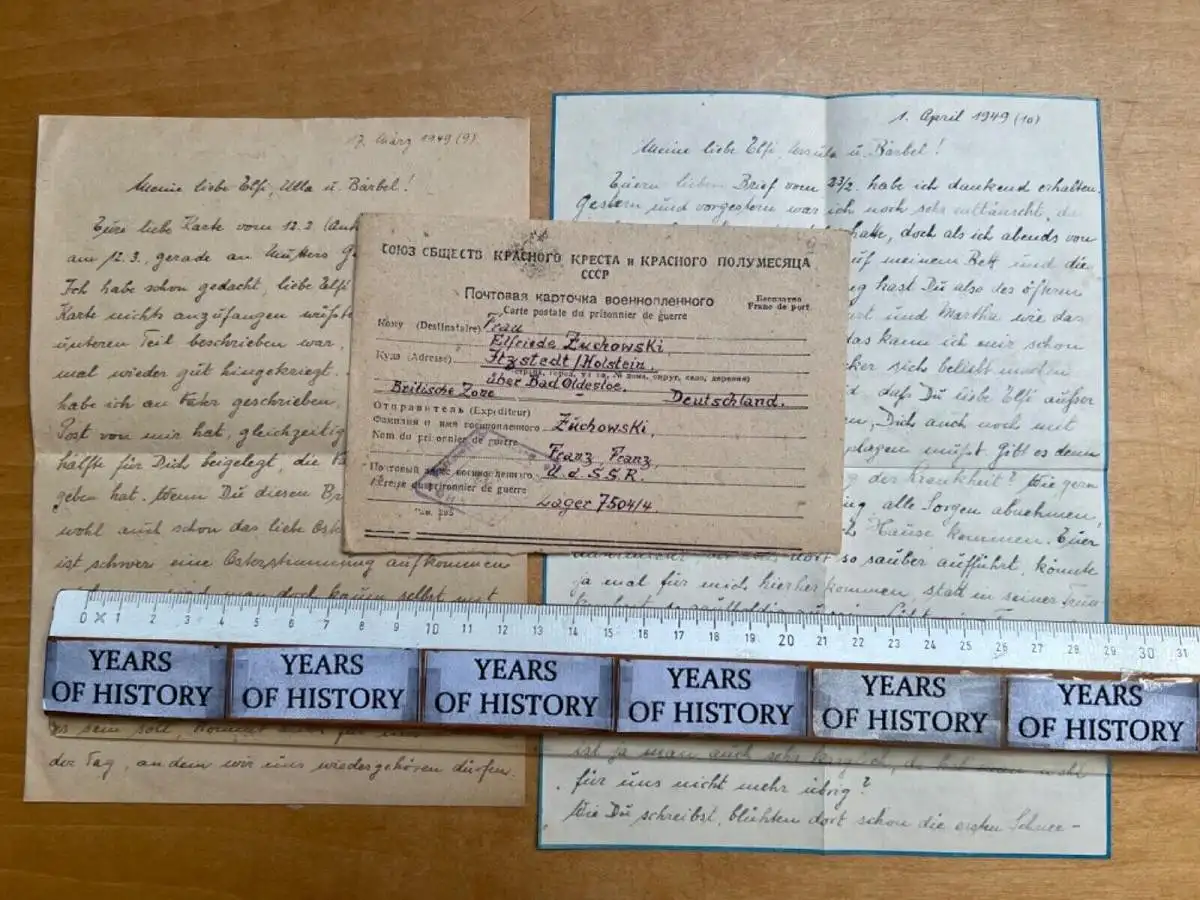 17. März 1949 (9).
Meine liebe Elfi, Ulla u. Bärbel!
Eure liebe Karte vom 12.2
am 12.3. gerade an Mutters
Ich habe schon gedacht, liebe Elfi
Karte nichts anzufangen wüßte
unteren Teil beschrieben war.
mal wieder gut hingekriegt.
habe ich an Vater geschrieben,
Post von mir hat, gleichzeitig
hälfte für Dich beigelegt, die
geben hat. Wenn Du diesen
wohl auch schon das liebe
ist schwer eine Osterstimmung aufkommen
man doch kaum selbst mit
es sein soll, kommt
der Tag, an dem wir uns wiedergehören dürfen.
СОЮЗ ОБЩЕСТВ КРАСНОГО КРЕСТА и КРАСНОГО ПОЛУМЕСЯЦА
СССР
Почтовая карточка военнопленного
Carte postale du prisonnier de guerre
Бесплатно
Franc de port
Кому (Destinataire) Frau
Elfriede Zuchowski,
Куда (Adresse) Itzstedt/Holstein.
über Bad Oldesloe.
Britische Zone Deutschland.
Отправитель (Expéditeur)
Фамилия и имя военнопленного Zuchowski,
Nom du prisonnier de guerre
Franz, Franz,
Почтовый адрес военнопленного U.d.S.S.R.
Adresse du prisonnier de guerre
Lager 7504/4.
1. April 1949 (10)
Meine liebe Elfi, Ursula u. Bärbel!
Euern lieben Brief vom 23/2. habe ich dankend erhalten.
Gestern und vorgestern war ich noch sehr enttäuscht, da
hatte, doch als ich abends von
auf meinem Bett und die
hast Du also des öftern
und Martha wie das
das kann ich mir schon
sich beliebt machen
daß Du liebe Elfi außer
Dich auch noch mit
mußt. Gibt es denn
der Krankheit? Wie gern
alle Sorgen abnehmen,
Hause kommen. Euer
dort so sauber aufführt, könnte
ja mal für mich hierher kommen, statt in seiner
ist ja man auch sehr
für uns nicht mehr übrig?
Wie Du schreibst, blühten dort schon die ersten Schnee-
0 1 2 3 4 5 6 7 8 9 10 11 12 13 14 15 16 17 18 19 20 21 22 23 24 25 26 27 28 29 30 31
YEARS
OF HISTORY
YEARS
OF HISTORY
YEARS
OF HISTORY
YEARS
OF HISTORY
YEARS
OF HISTORY
YEARS
OF HISTORY